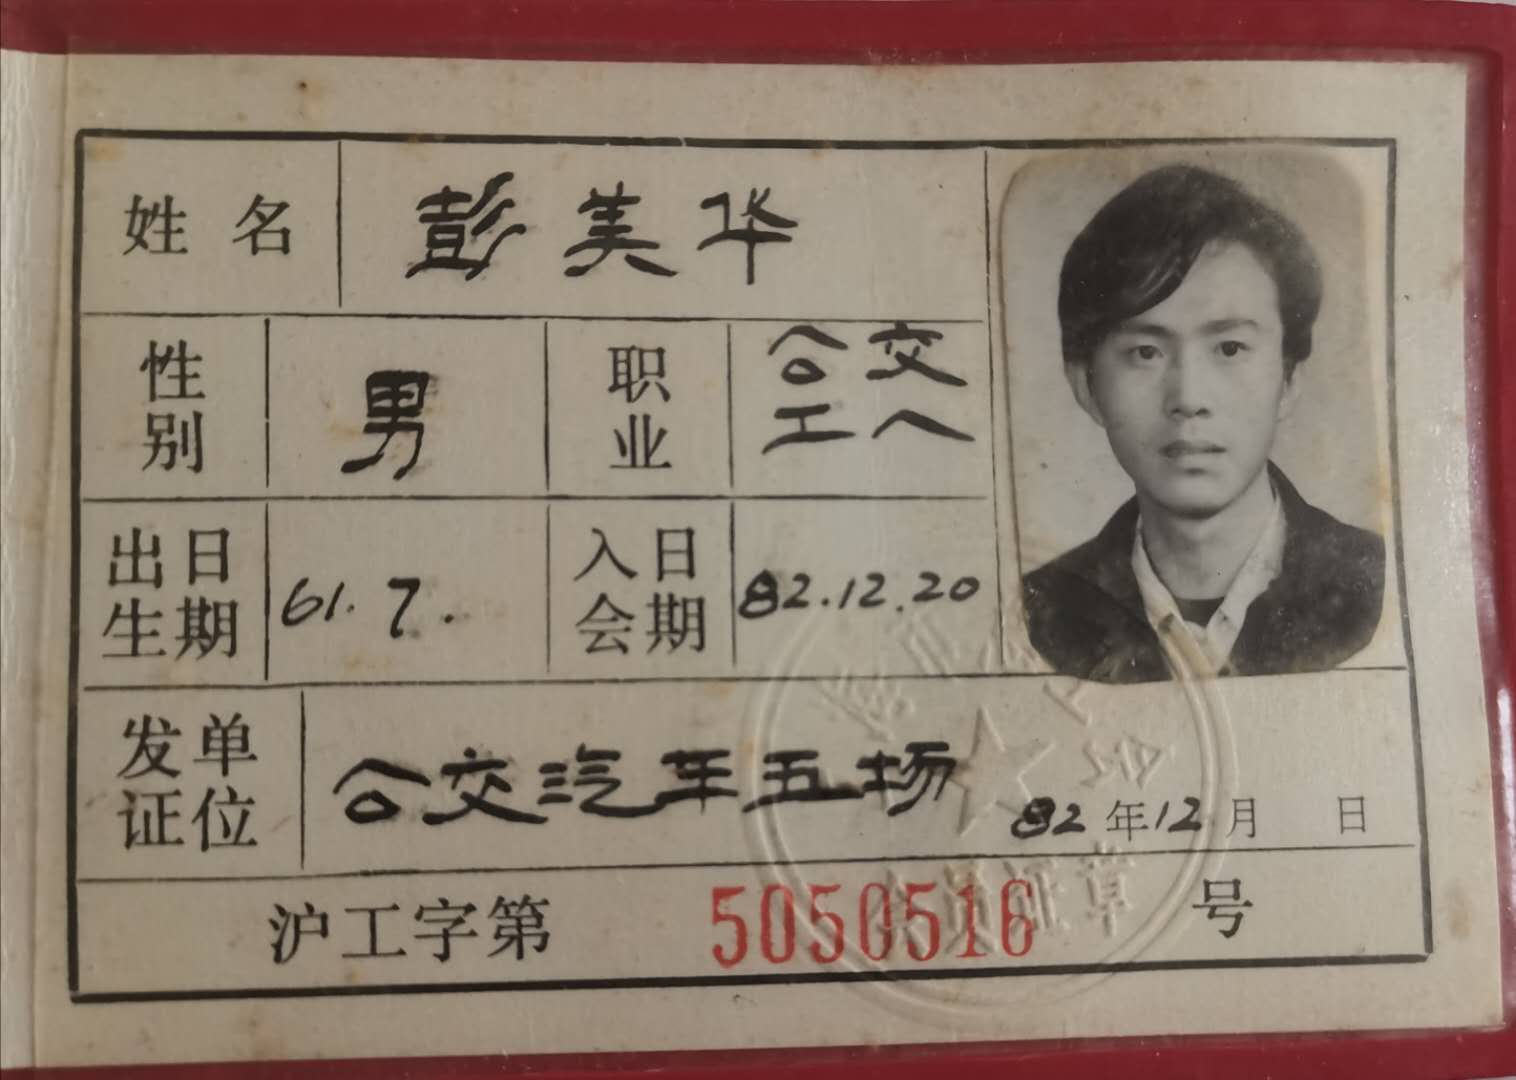 姓名 彭美华
性别 男 职业 公交工人
出生日期 61.7. 入会日期 82.12.20
发证单位 公交汽车五场 82年12月 日
沪工字第 5050516 号